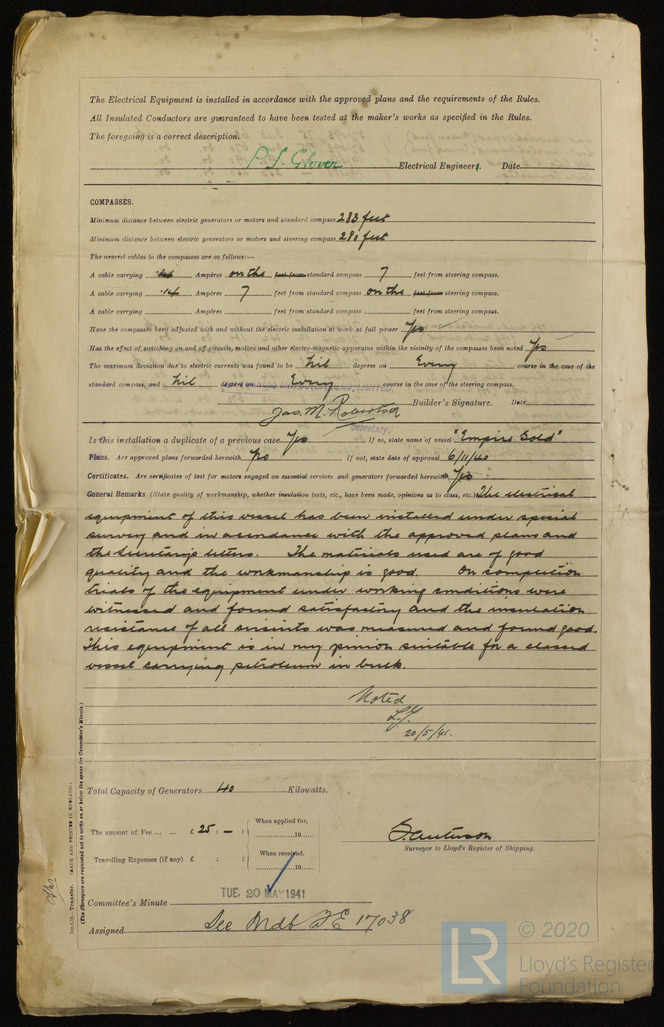 The Electrical Equipment is installed in accordance with the approved plans and the requirements of the Rules.
All Insulated Conductors are guaranteed to have been tested at the maker's works as specified in the Rules.
The foregoing is a correct description.
P. S. Glover Electrical Engineers. Date
COMPASSES.
Minimum distance between electric generators or motors and standard compass 283 feet
Minimum distance between electric generators or motors and steering compass 280 feet
The nearest cables to the compasses are as follows:—
A cable carrying .14 Ampères on the feet from standard compass 7 feet from steering compass.
A cable carrying .14 Ampères 7 feet from standard compass on the feet from steering compass.
A cable carrying Ampères feet from standard compass feet from steering compass.
Have the compasses been adjusted with and without the electric installation at work at full power Yes
Has the effect of switching on and off circuits, motors and other electro-magnetic apparatus within the vicinity of the compasses been noted Yes
The maximum deviation due to electric currents was found to be Nil degrees on Every course in the case of the
standard compass, and Nil degrees on Every course in the case of the steering compass.
Jas. M. Robertson Builder's Signature. Date
Secretary.
Is this installation a duplicate of a previous case Yes If so, state name of vessel "Empire Gold"
Plans. Are approved plans forwarded herewith No If not, state date of approval 6/11/40
Certificates. Are certificates of test for motors engaged on essential services and generators forwarded herewith Yes
General Remarks (State quality of workmanship, whether insulation tests, etc., have been made, opinions as to class, etc.) The electrical
equipment of this vessel has been installed under special
survey and in accordance with the approved plans and
the Secretary's letters. The materials used are of good
quality and the workmanship is good. On completion
trials of the equipment under working conditions were
witnessed and found satisfactory and the insulation
resistance of all circuits was measured and found good.
This equipment is in my opinion suitable for a classed
vessel carrying petroleum in bulk.
Noted
20/5/41.
Total Capacity of Generators 40 Kilowatts.
The amount of Fee ... ... £ 25 : — :
When applied for,
19
Travelling Expenses (if any) £ : :
When received,
19
Surveyor to Lloyd's Register of Shipping.
TUE. 20 MAY 1941
Committee's Minute
Assigned See F.E. 17038
Transfer. (MADE AND PRINTED IN ENGLAND.)
(The Surveyors are requested not to write on or below the space for Committee's Minute.)
LR
© 2020
Lloyd's Register
Foundation